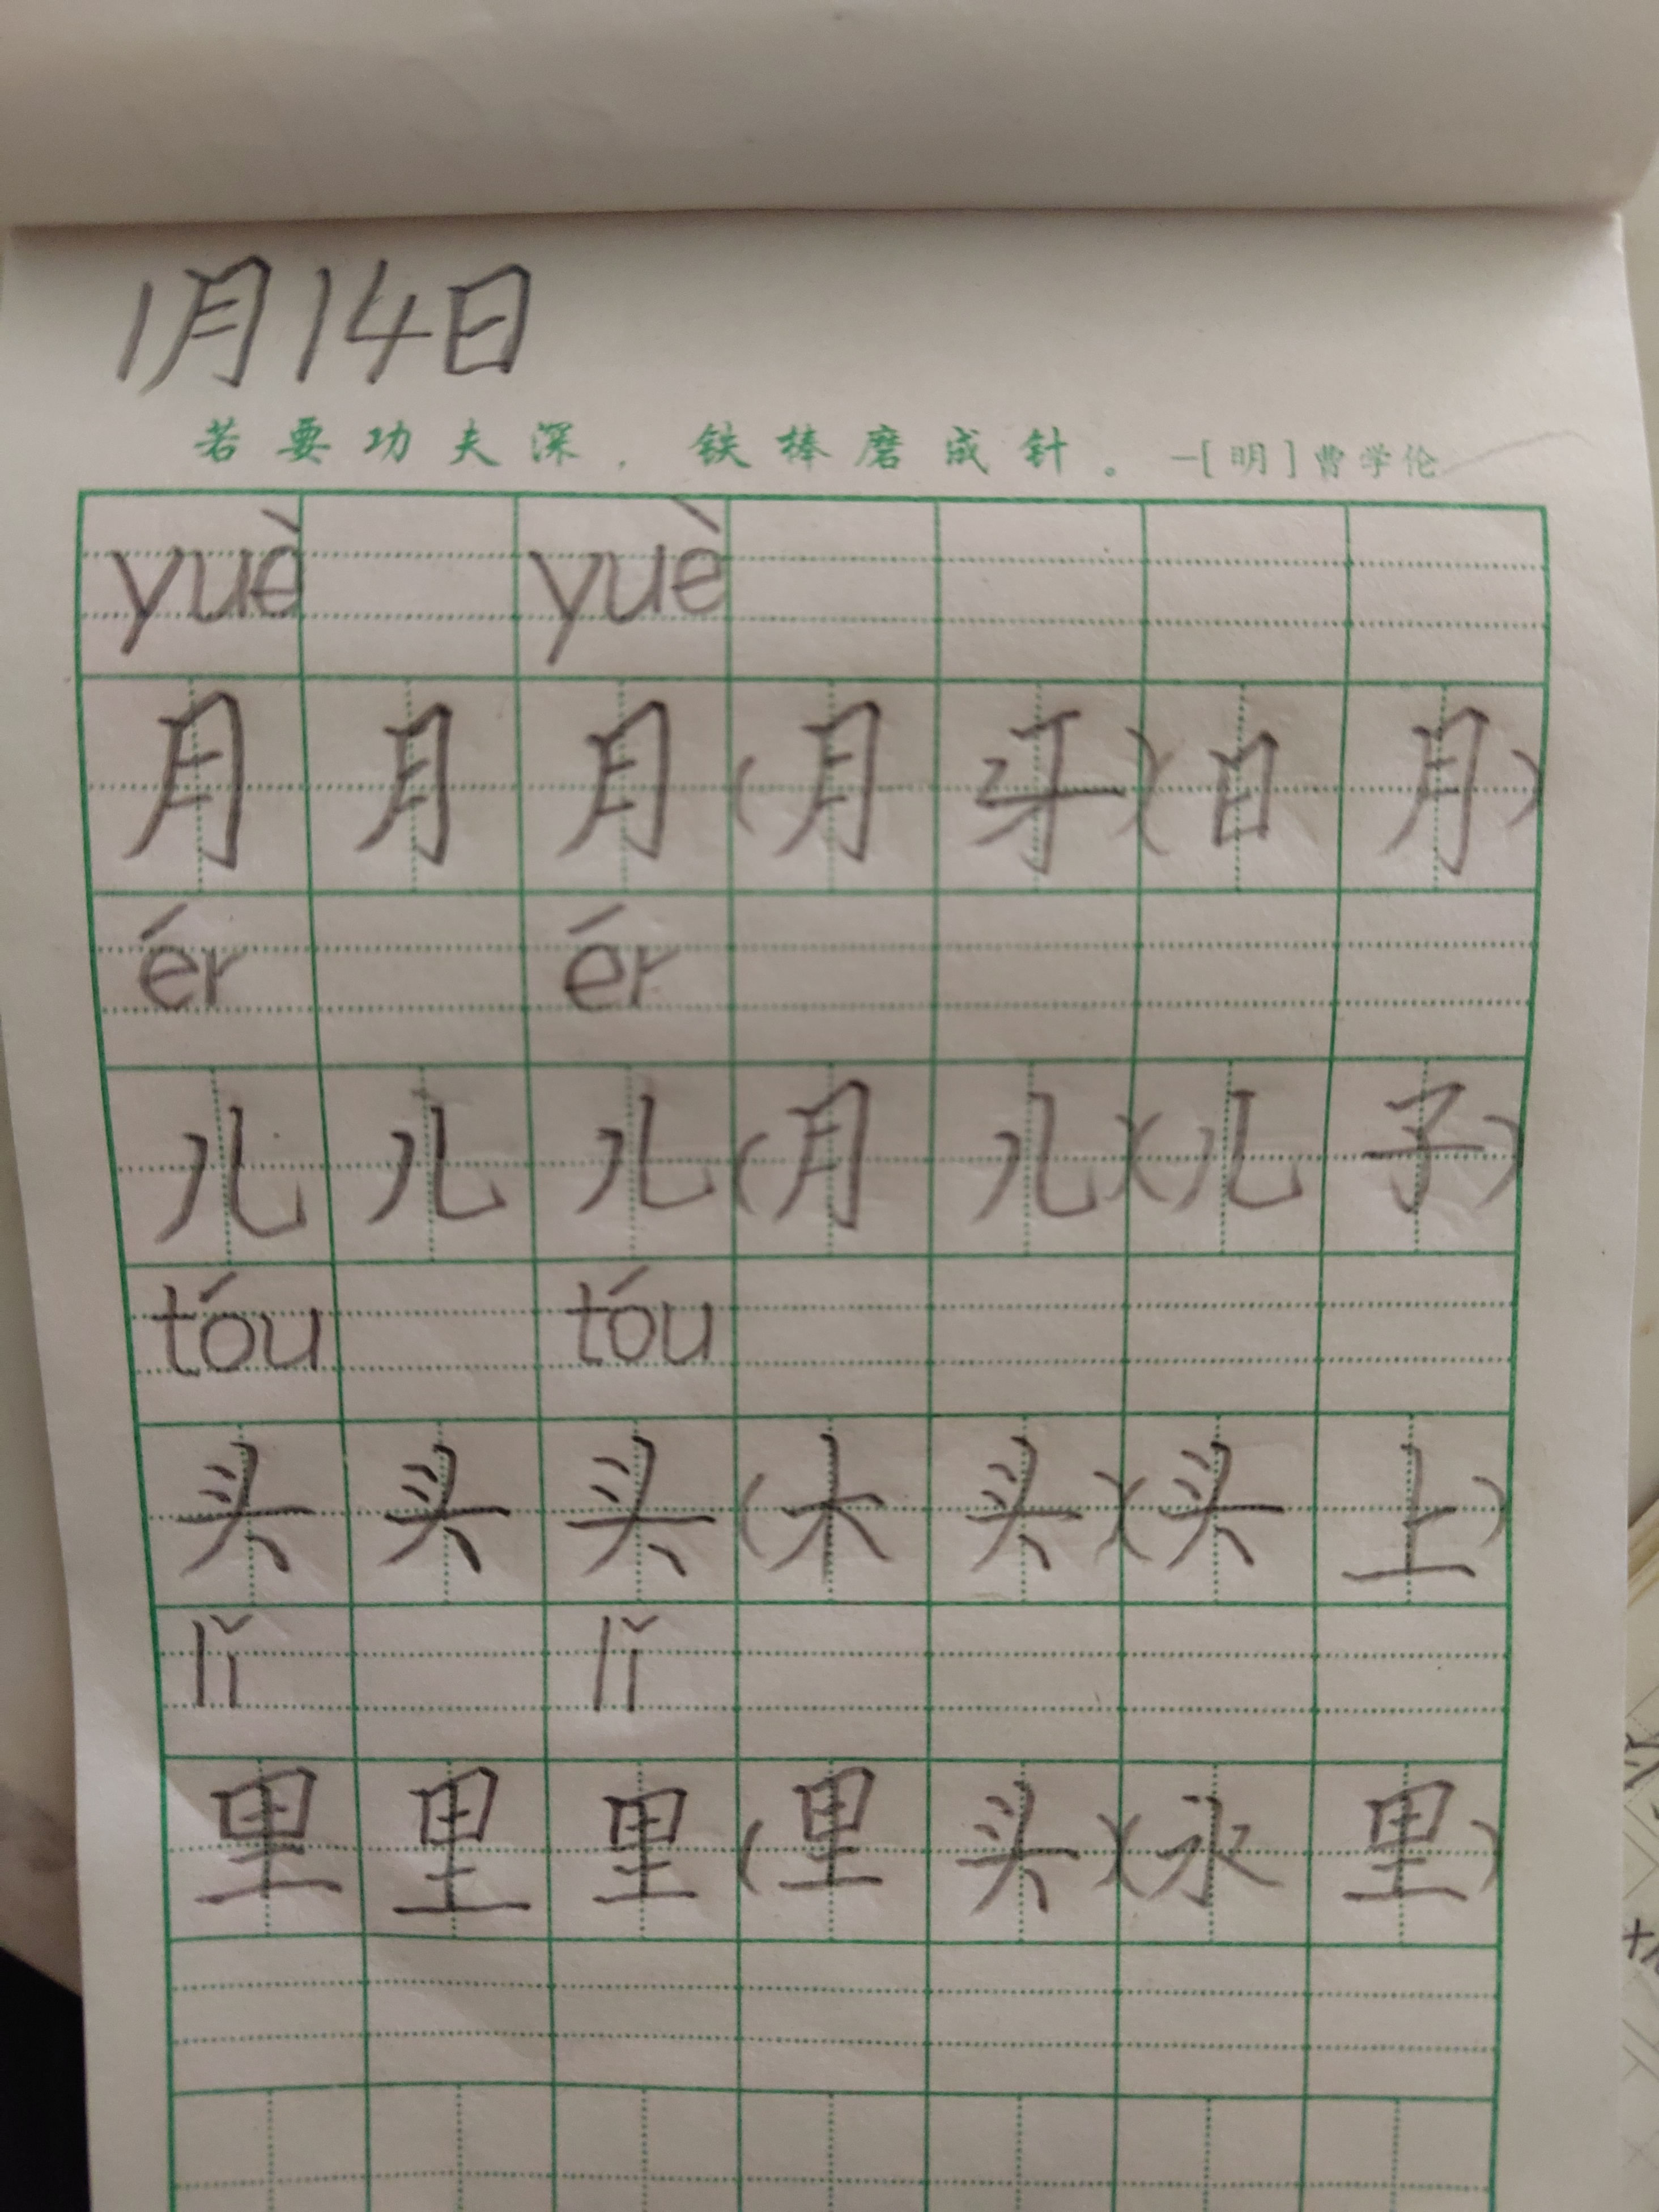 1月14日
若要功夫深，铁棒磨成针。—[明]曹学伦
yuè yuè
月月月(月牙)(日月)
ér ér
儿儿儿(月儿)(儿子)
tóu tóu
头头头(木头)(头上)
lǐ lǐ
里里里(里头)(水里)